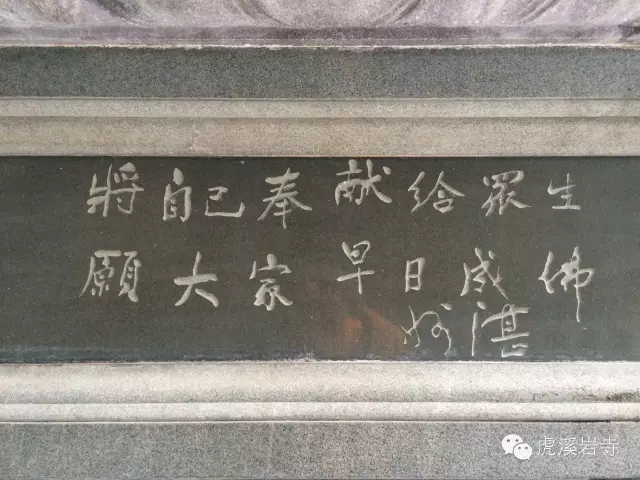 將自己奉献給眾生
願大家早日成佛
妙湛
虎溪岩寺